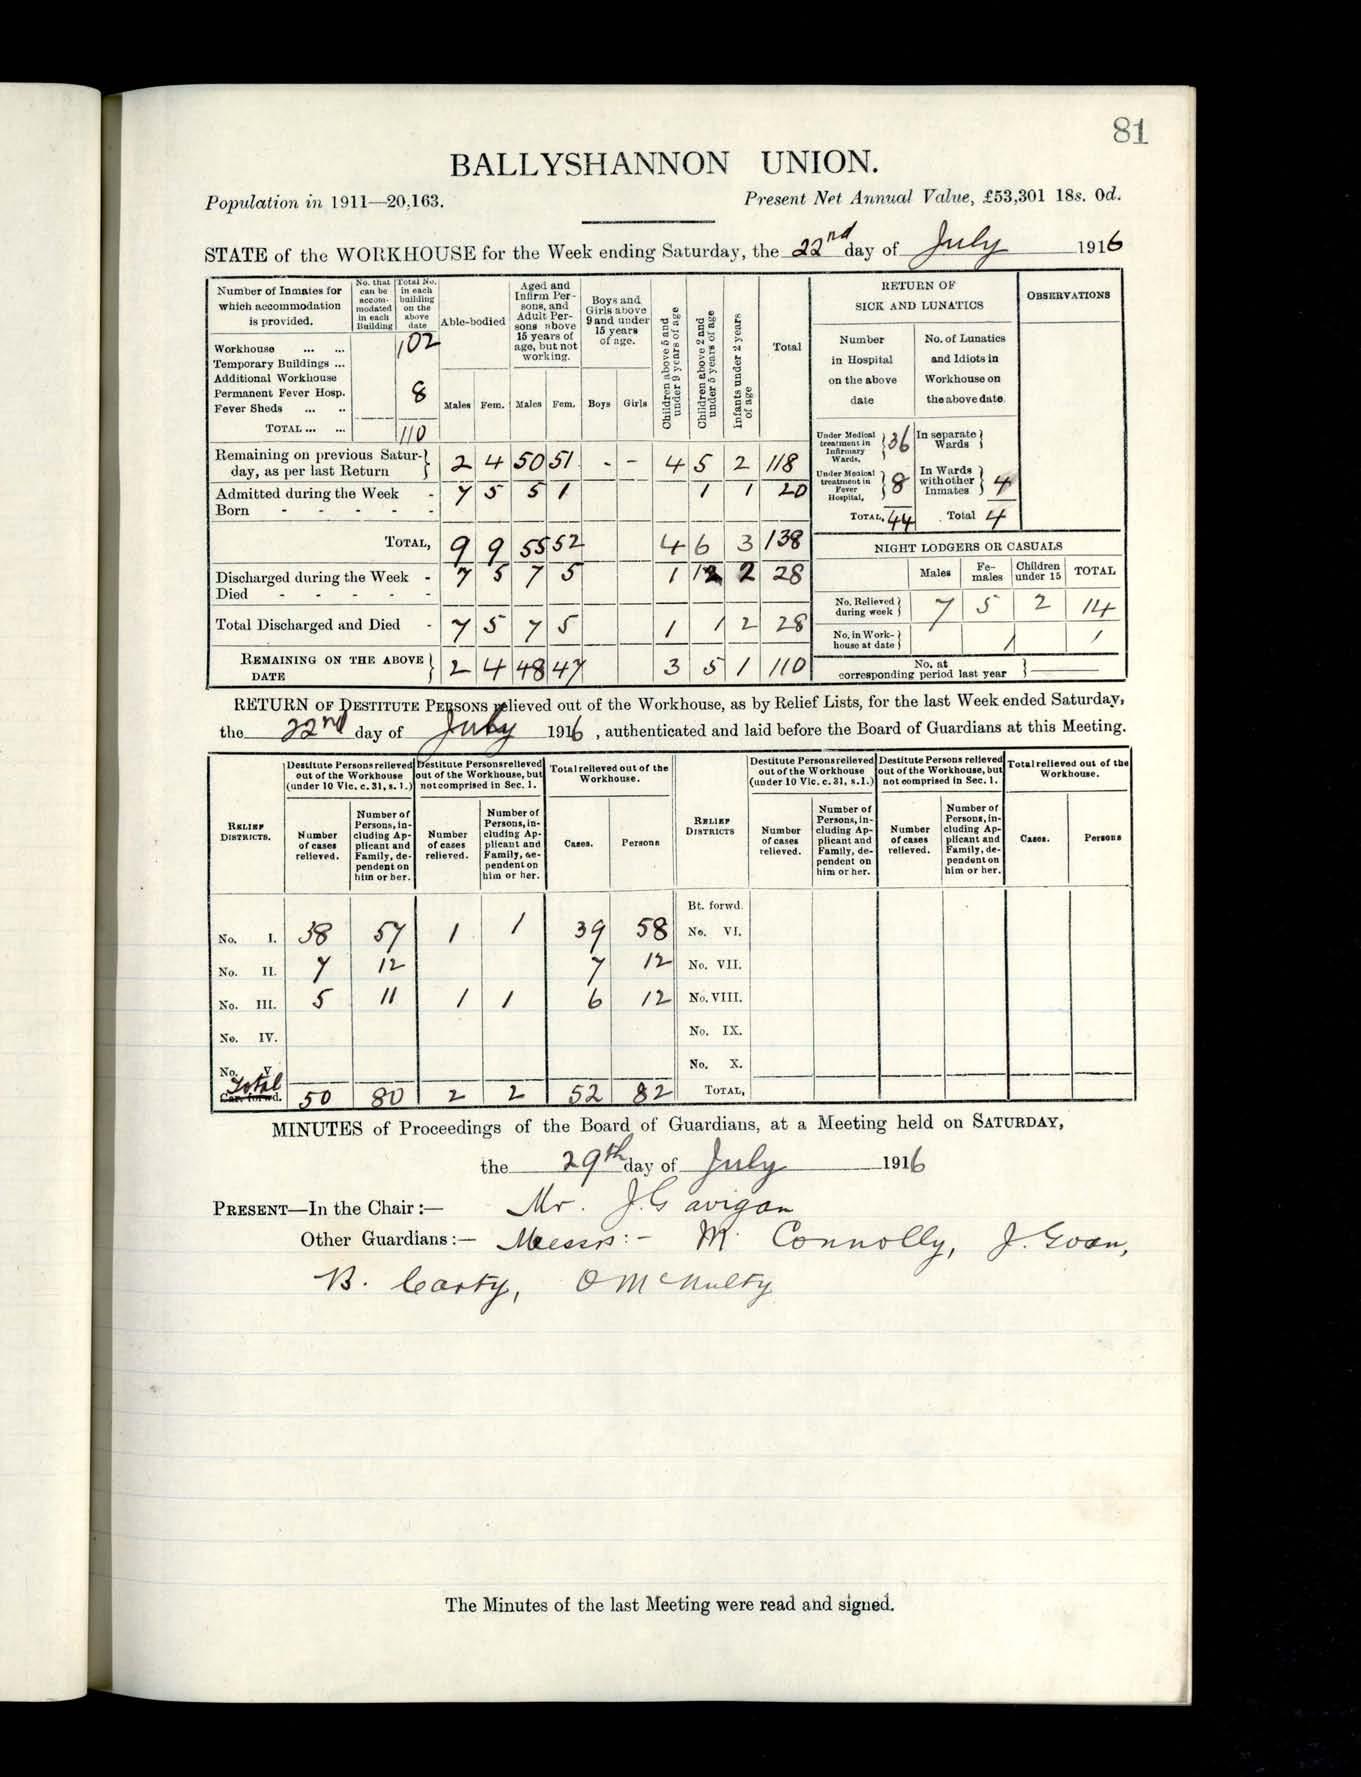 81
BALLYSHANNON UNION.
Population in 1911—20,163. Present Net Annual Value, £53,301 18s. 0d.
STATE of the WORKHOUSE for the Week ending Saturday, the 22nd day of July 1916
Number of Inmates for which accommodation is provided. No. that can be accommodated in each Building Total No. in each building on the above date Able-bodied Aged and Infirm Persons, and Adult Persons above 15 years of age, but not working. Boys and Girls above 9 and under 15 years of age. Children above 5 and under 9 years of age Children above 2 and under 5 years of age Infants under 2 years of age Total RETURN OF SICK AND LUNATICS OBSERVATIONS
Males Fem. Males Fem. Boys Girls
Number in Hospital on the above date No. of Lunatics and Idiots in Workhouse on the above date.
Workhouse ... ... 102
Temporary Buildings ...
Additional Workhouse
Permanent Fever Hosp. 8
Fever Sheds ... ..
TOTAL ... ... 110
Remaining on previous Saturday, as per last Return } 2 4 50 51 - - 4 5 2 118
Admitted during the Week - 7 5 5 1 1 1 20
Born - - - - -
TOTAL, 9 9 55 52 4 6 3 138
Discharged during the Week - 7 5 7 5 1 1 2 28
Died - - - - -
Total Discharged and Died - 7 5 7 5 1 1 2 28
REMAINING ON THE ABOVE DATE } 2 4 48 47 3 5 1 110
Under Medical treatment in Infirmary Wards, } 36 In separate Wards }
Under Medical treatment in Fever Hospital, } 8 In Wards with other Inmates } 4
TOTAL, 44 Total 4
NIGHT LODGERS OR CASUALS
Males Females Children under 15 TOTAL
No. Relieved during week } 7 5 2 14
No. in Workhouse at date } 1 1
No. at corresponding period last year }
RETURN OF DESTITUTE PERSONS relieved out of the Workhouse, as by Relief Lists, for the last Week ended Saturday,
the 22nd day of July 1916, authenticated and laid before the Board of Guardians at this Meeting.
RELIEF DISTRICTS. Destitute Persons relieved out of the Workhouse (under 10 Vic. c. 31, s. 1.) Destitute Persons relieved out of the Workhouse, but not comprised in Sec. 1. Total relieved out of the Workhouse. RELIEF DISTRICTS Destitute Persons relieved out of the Workhouse (under 10 Vic. c. 31, s.1.) Destitute Persons relieved out of the Workhouse, but not comprised in Sec. 1. Total relieved out of the Workhouse.
Number of cases relieved. Number of Persons, including Applicant and Family, dependent on him or her. Number of cases relieved. Number of Persons, including Applicant and Family, dependent on him or her. Cases. Persons Number of cases relieved. Number of Persons, including Applicant and Family, dependent on him or her. Number of cases relieved. Number of Persons, including Applicant and Family, dependent on him or her. Cases. Persons
Bt. forwd.
No. I. 38 57 1 1 39 58 No. VI.
No. II. 7 12 7 12 No. VII.
No. III. 5 11 1 1 6 12 No. VIII.
No. IV. No. IX.
No. V. No. X.
Total Car. forwd. 50 80 2 2 52 82 TOTAL,
MINUTES of Proceedings of the Board of Guardians, at a Meeting held on SATURDAY,
the 29th day of July 1916
PRESENT—In the Chair:— Mr. J. Gavigan
Other Guardians:— Messrs:- M. Connolly, J. Goan,
B. Carty, O McNulty
The Minutes of the last Meeting were read and signed.